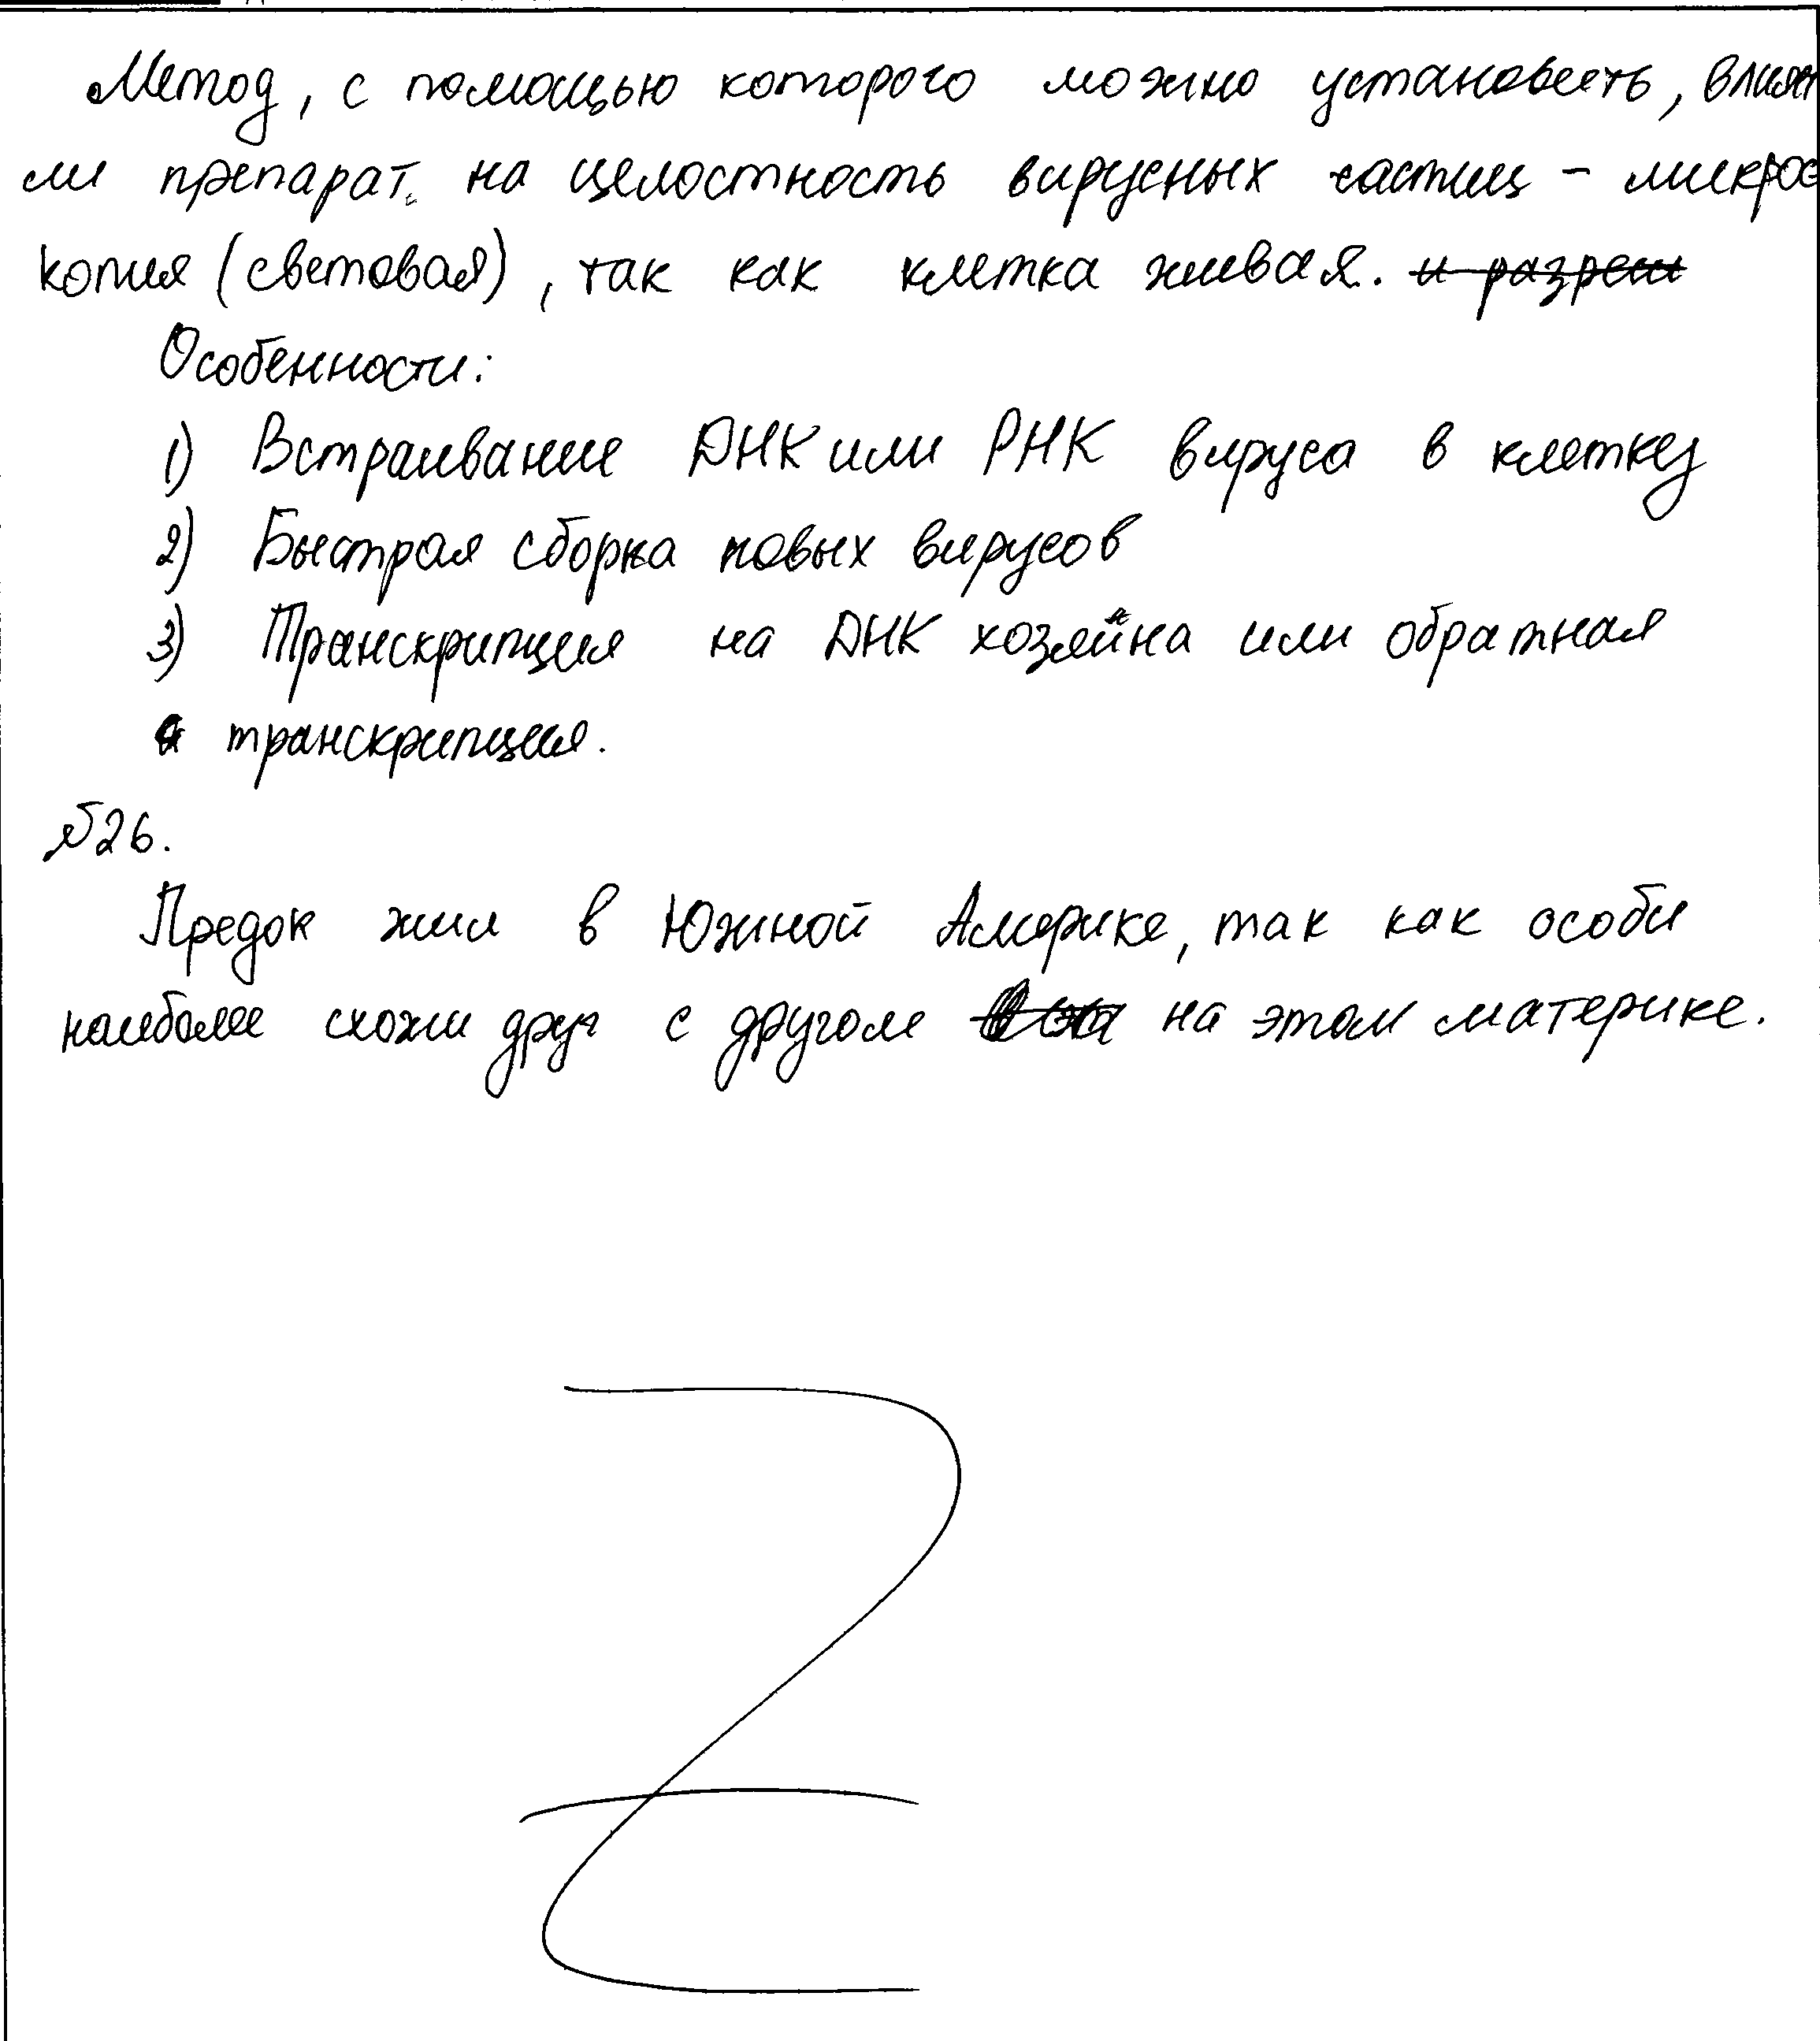 Метод, с помощью которого можно установить, влияет
ли препарат на целостность вирусных частиц - микрос
копия (световая), так как клетка живая. и разреш
Особенности:
1) Встраивание ДНК или РНК вируса в клетку
2) Быстрая сборка новых вирусов
3) Транскрипция на ДНК хозяйна или обратная
транскрипция.
№26.
Предок жил в Южной Америке, так как особи
наиболее схожи друг с другом на этом материке.